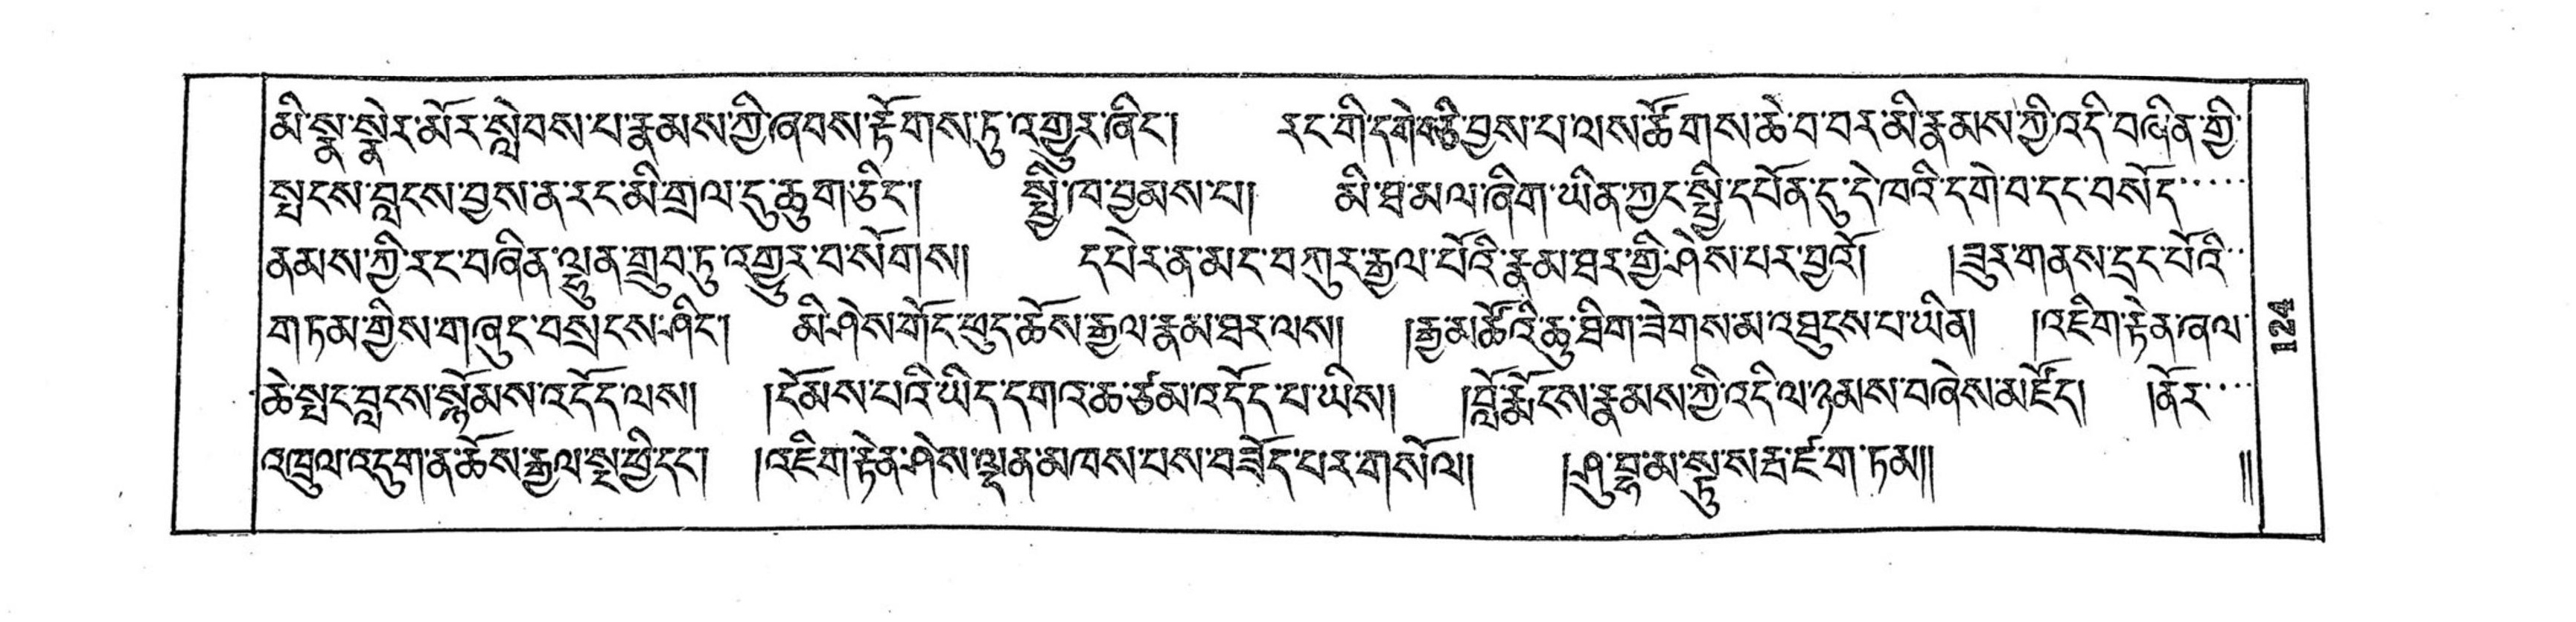 མི་སྣ་སྣེར་མོར་སླེབས་པ་རྣམས་ཀྱི་ཞབས་རྟོགས་ཏུ་འགྱུར་ཞིང་། རང་གི་དགེ་རྩི་བྱས་པ་ལས་ཚོགས་ཆེ་བ་བར་མི་རྣམས་ཀྱི་འདི་བཞིན་གྱི་
སྤངས་བླངས་བྱས་ན་རང་མི་གྲལ་དུ་ཆུག་ཅིང་། སྤྱི་ཁ་བྱམས་པ། མི་ཐ་མལ་ཞིག་ཡིན་ཀྱང་སྤྱི་དཔོན་དུ་དེ་ཁའི་དགེ་བ་དང་བསོད་་་་་
ནམས་ཀྱི་རང་བཞིན་ལྷུན་གྲུབ་ཏུ་འགྱུར་བ་སོགས། དཔེར་ན་མང་བཀུར་རྒྱལ་པོའི་རྣམ་ཐར་གྱི་ཤེས་པར་བྱའོ། །ཟུར་གནས་དྲང་པོའི་་
གཏམ་གྱིས་གཞུང་བསྲངས་ཤིང་། མི་ཤེས་གོང་ཁུད་ཆོས་རྒྱལ་རྣམ་ཐར་ལས། །རྒྱ་མཚོའི་ཆུ་ཐིག་ཟེགས་མ་འཐུངས་པ་ཡིན། །འཇིག་རྟེན་ཞལ་
ཆེ་སྤང་བླངས་སྙོམས་འདོད་ལས། །ངོམས་པའི་ཡིད་དགའ་ཆ་ཙམ་འདོད་པ་ཡིས། །བློ་རྨོངས་རྣམས་ཀྱི་འདི་ལ་ཉམས་བཞེས་མཛོད། །ནོར་་་་
འཁྲུལ་འདུག་ན་ཆོས་རྒྱལ་སྔ་ཕྱི་དང་། །འཇིག་རྟེན་ཤེས་ལྡན་མཁས་པས་བཟོད་པར་གསོལ། །ཤུ་བྷ་མ་སྟུ་ས་རྦ་ཛ་ག་ཏམ།། ༎
124